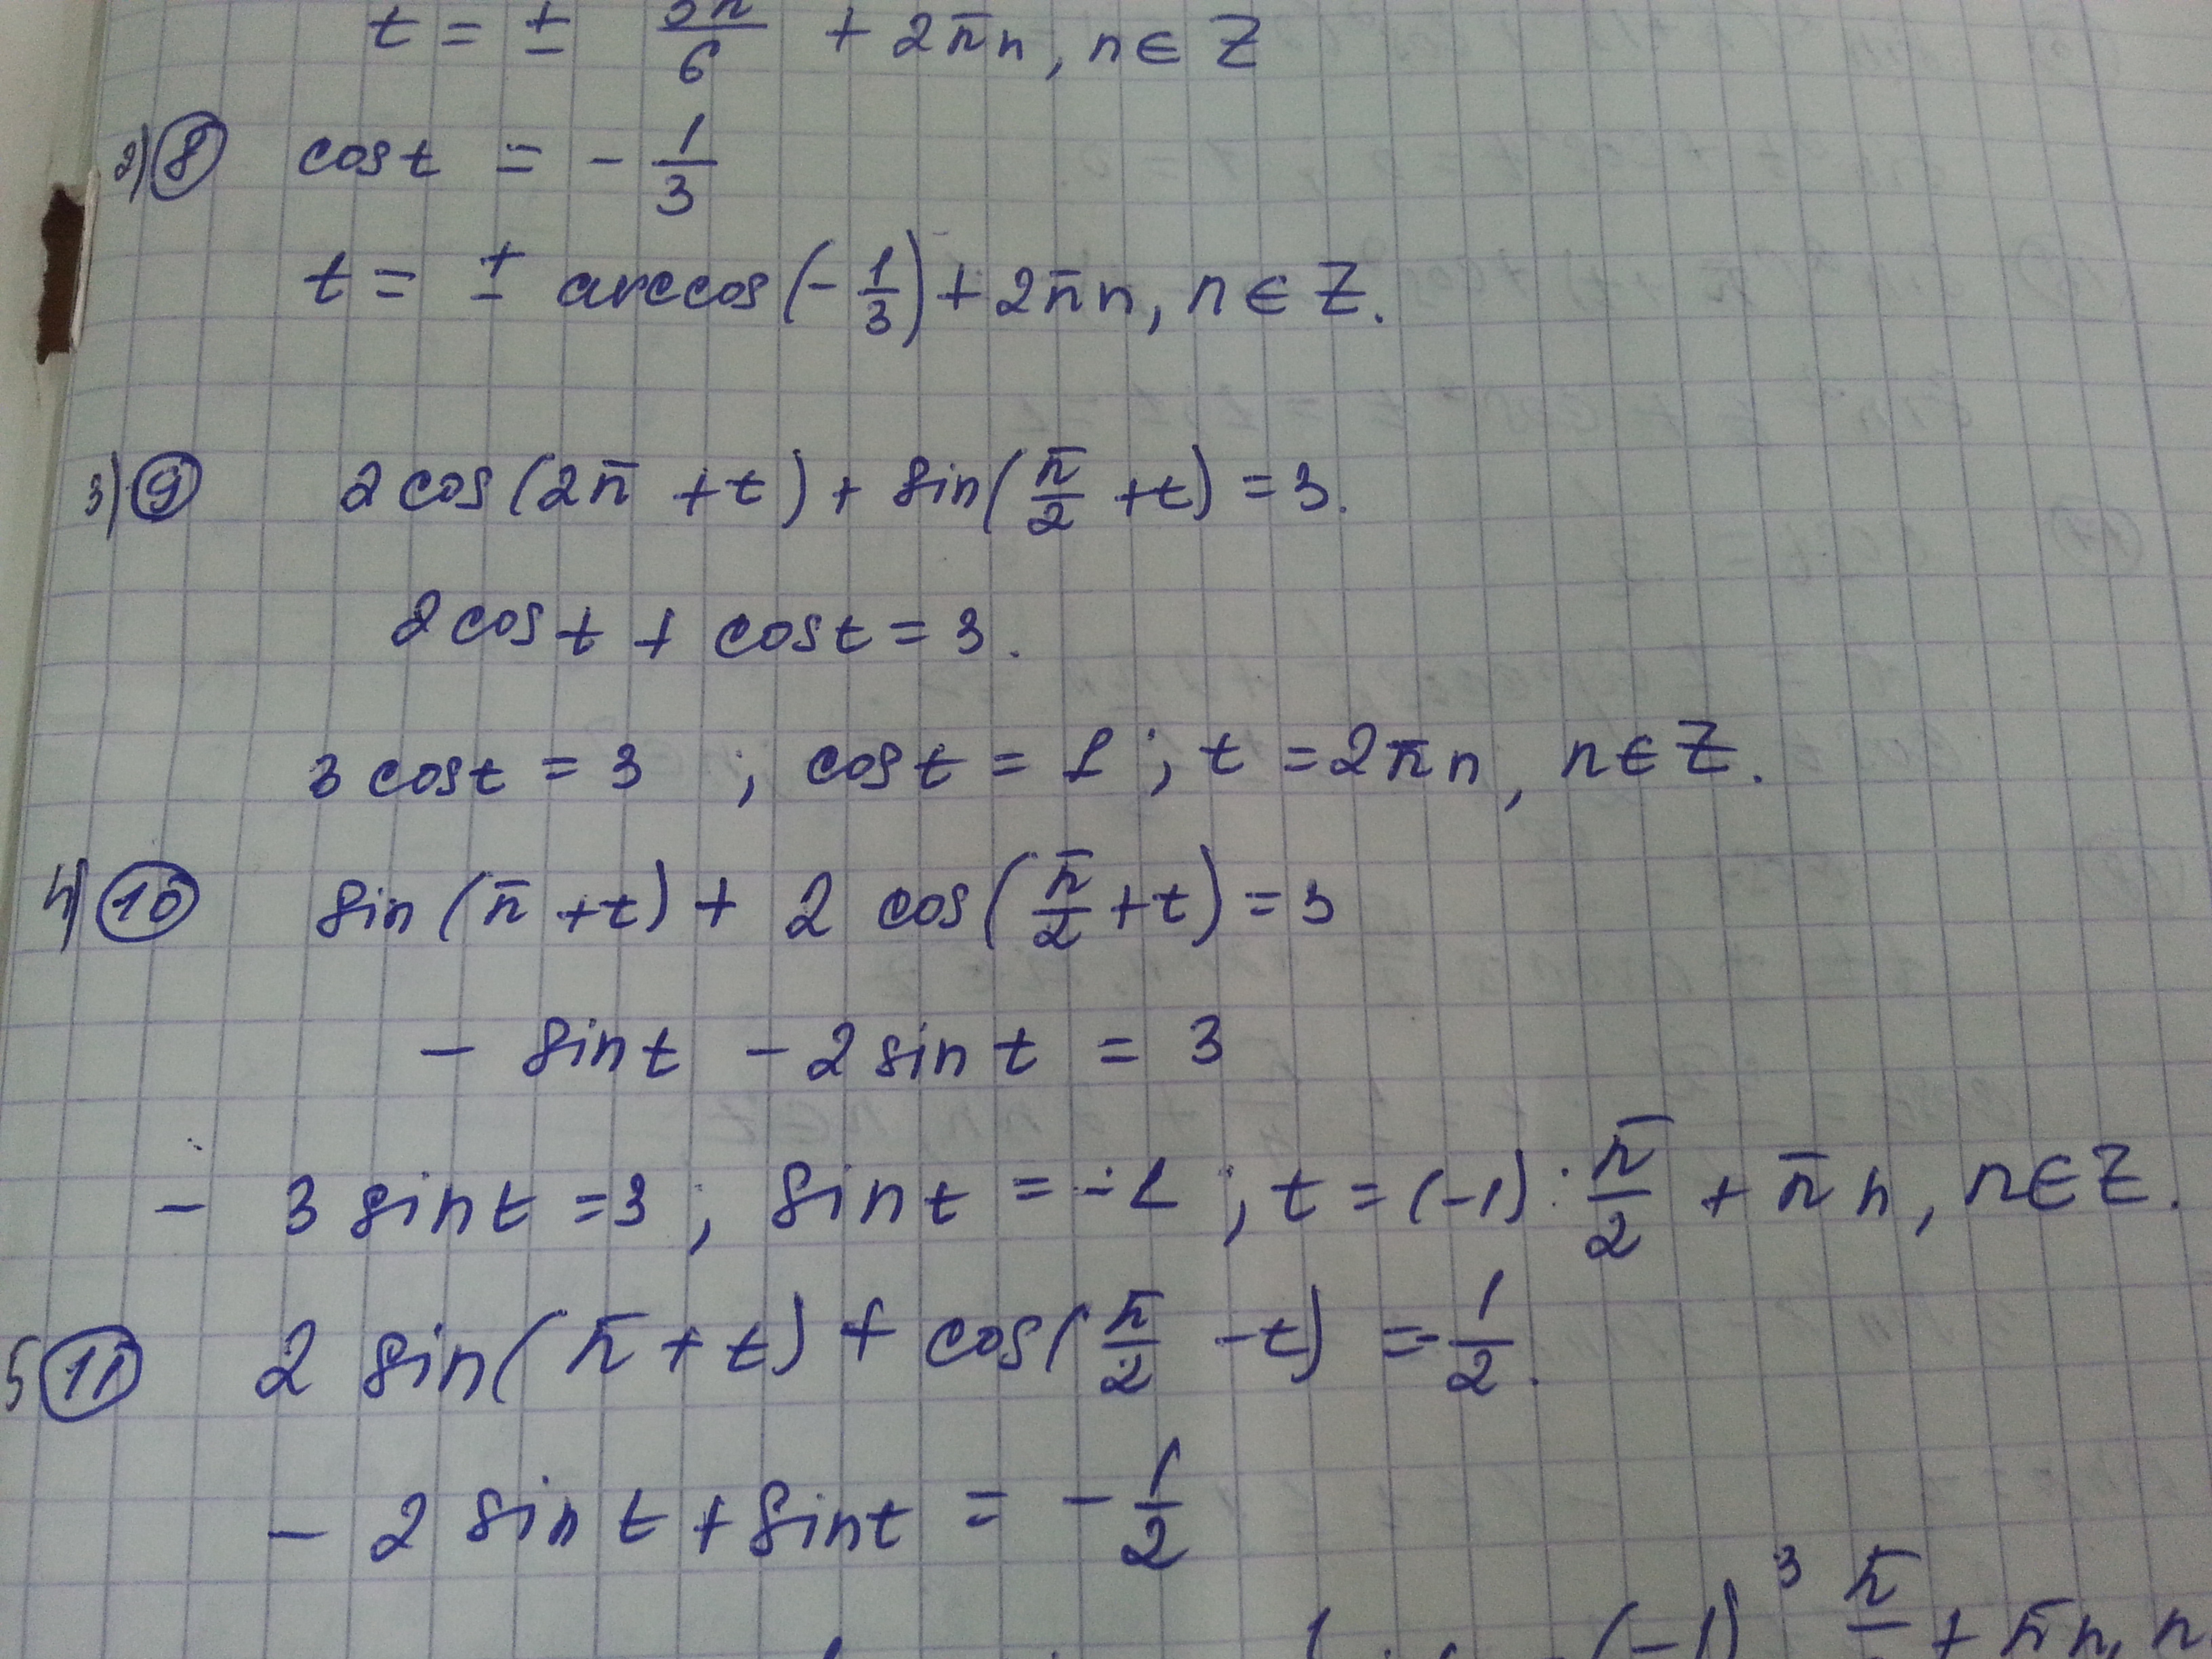 t = ± 5π/6 + 2πn, n ∈ Z
2) 8 cos t = - 1/3
t = ± arccos(- 1/3) + 2πn, n ∈ Z.
3) 9 2 cos(2π + t) + sin(π/2 + t) = 3.
2 cos t + cos t = 3.
3 cos t = 3 ; cos t = 1 ; t = 2πn, n ∈ Z.
4) 10 sin(π + t) + 2 cos(π/2 + t) = 3
- sin t - 2 sin t = 3
- 3 sin t = 3 ; sin t = -1 ; t = (-1) · π/2 + πn, n ∈ Z.
5 11 2 sin(π + t) + cos(π/2 - t) = - 1/2.
- 2 sin t + sin t = - 1/2
(-1)³ π + πn, n